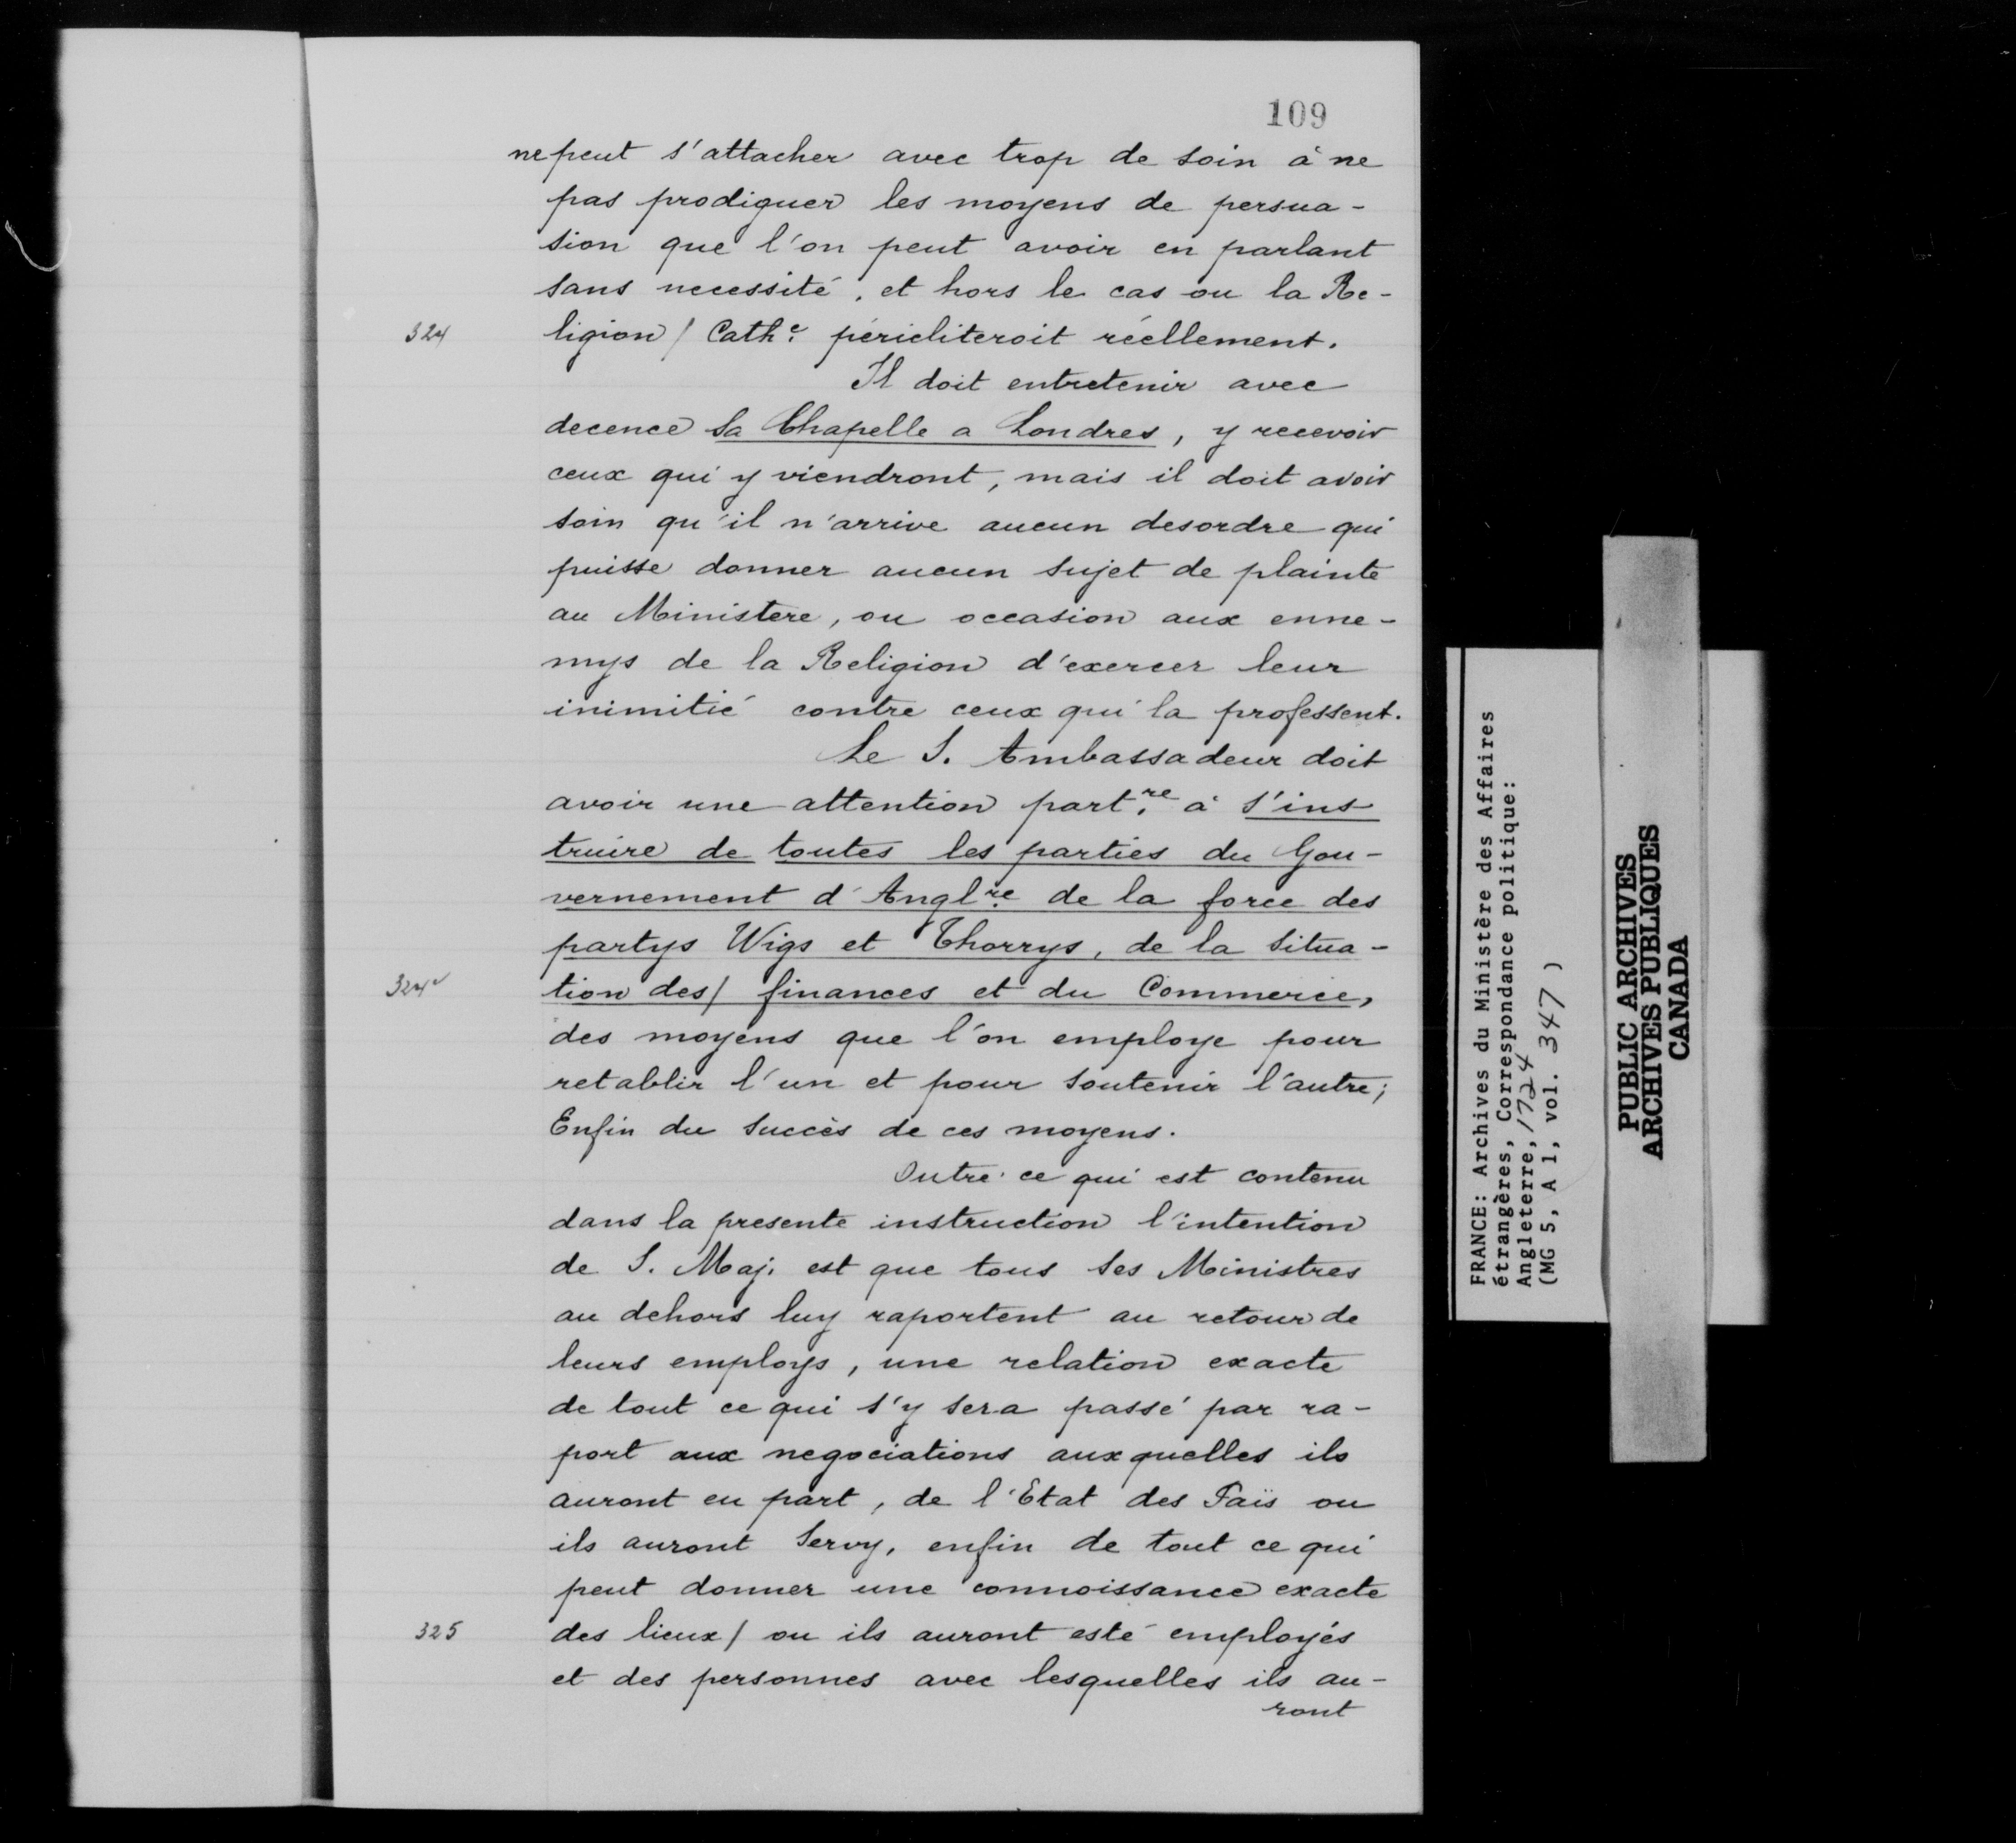 109
ne peut s'attacher avec trop de soin à ne
pas prodiguer les moyens de persua-
sion que l'on peut avoir en parlant
sans necessité, et hors le cas ou la Re-
324 ligion / Cath.e péricliteroit réellement.
Il doit entretenir avec
decence sa Chapelle a Londres, y recevoir
ceux qui y viendront, mais il doit avoir
soin qu'il n'arrive aucun desordre qui
puisse donner aucun sujet de plainte
au Ministere, ou occasion aux enne-
mys de la Religion d'exercer leur
inimitié contre ceux qui la professent.
Le S. Ambassadeur doit
avoir une attention part.re à s'ins
truire de toutes les parties du Gou-
vernement d'Angl.re de la force des
partys Wigs et Thorrys, de la situa-
324v tion des / finances et du Commerce,
des moyens que l'on employe pour
retablir l'un et pour soutenir l'autre;
Enfin du succès de ces moyens.
Outre ce qui est contenu
dans la presente instruction l'intention
de S. Maj. est que tous ses Ministres
au dehors luy raportent au retour de
leurs employs, une relation exacte
de tout ce qui s'y sera passé par ra-
port aux negociations auxquelles ils
auront eu part, de l'Etat des Païs ou
ils auront Servy, enfin de tout ce qui
peut donner une connoissance exacte
325 des lieux / ou ils auront esté employés
et des personnes avec lesquelles ils au-
ront
FRANCE: Archives du Ministère des Affaires
étrangères, Correspondance politique:
Angleterre, 1724
(MG 5, A 1, vol. 347 )
PUBLIC ARCHIVES
ARCHIVES PUBLIQUES
CANADA